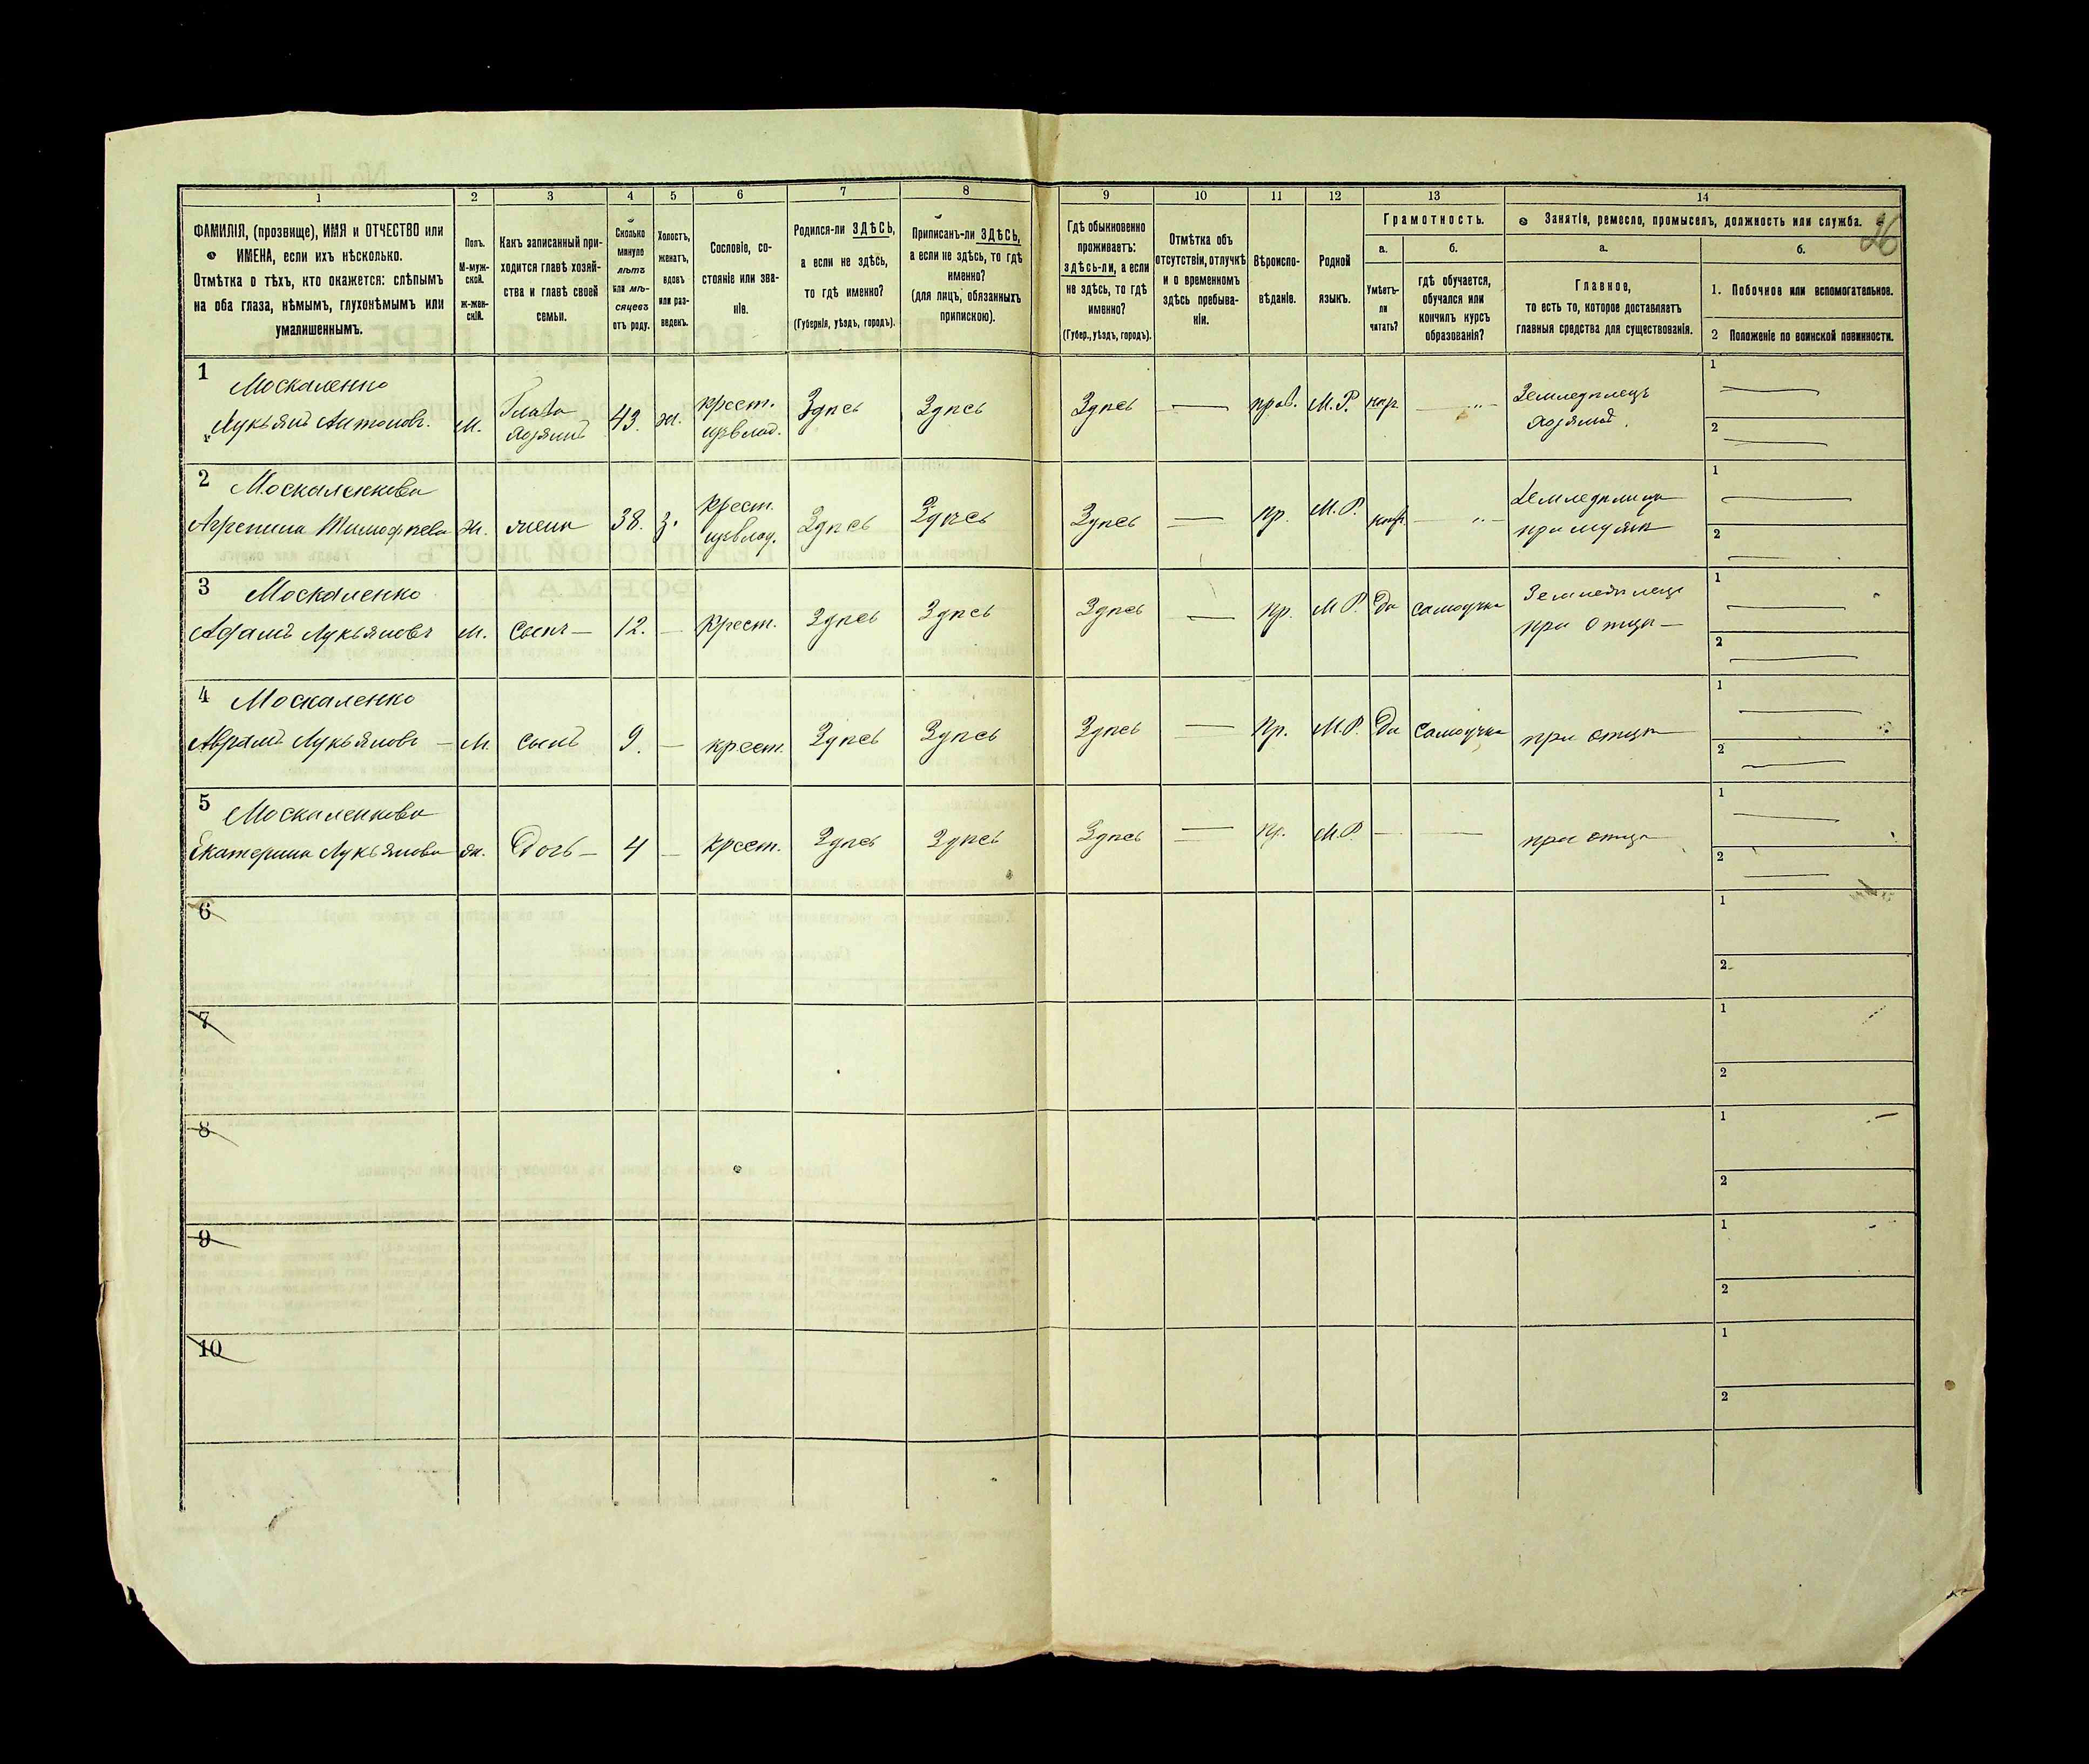 26
1 2 3 4 5 6 7 8 9 10 11 12 13 14
ФАМИЛІЯ, (прозвище), ИМЯ и ОТЧЕСТВО или
ИМЕНА, если ихъ нѣсколько.
Отмѣтка о тѣхъ, кто окажется: слѣпымъ
на оба глаза, нѣмымъ, глухонѣмымъ или
умалишеннымъ.
Полъ.
М-муж-
ской.
ж-жен-
скій.
Какъ записанный при-
ходится главѣ хозяй-
ства и главѣ своей
семьи.
Сколько
минуло
лѣтъ
или мѣ-
сяцевъ
отъ роду.
Холостъ,
женатъ,
вдовъ
или раз-
веденъ.
Сословіе, со-
стояніе или зва-
ніе.
Родился-ли ЗДѢСЬ,
а если не здѣсь,
то гдѣ именно?
(Губернія, уѣздъ, городъ).
Приписанъ-ли ЗДѢСЬ,
а если не здѣсь, то гдѣ
именно?
(для лицъ, обязанныхъ
припискою).
Гдѣ обыкновенно
проживаетъ:
здѣсь-ли, а если
не здѣсь, то гдѣ
именно?
(Губер., уѣздъ, городъ).
Отмѣтка объ
отсутствіи, отлучкѣ
и о временномъ
здѣсь пребыва-
ніи.
Вѣроиспо-
вѣданіе.
Родной
языкъ.
Грамотность.
а.
Умѣетъ-
ли
читать?
б.
гдѣ обучается,
обучался или
кончилъ курсъ
образованія?
Занятіе, ремесло, промыселъ, должность или служба.
а.
Главное,
то есть то, которое доставляетъ
главныя средства для существованія.
б.
1. Побочное или вспомогательное.
2 Положеніе по воинской повинности.
1 Москаленко
Лукьянъ Антоновъ. М. Глава хозяинъ 43. жи. крест. изъ влад. Здѣсь Здѣсь Здѣсь — прав. М.Р. нѣтъ — Земледѣлецъ хозяинъ
1
2
2 Москаленкова
Агрепина Тимофѣева Ж. жена 38. з. крест. изъ влад. Здѣсь Здѣсь Здѣсь — пр. М.Р. нѣтъ — Земледѣлица при мужѣ
1
2
3 Москаленко
Адамъ Лукьяновъ М. сынъ — 12. — крест. Здѣсь Здѣсь Здѣсь — пр. М.Р. Да самоучка Земледѣлецъ при отцѣ —
1
2
4 Москаленко
Аврамъ Лукьяновъ — М сынъ 9. — крест. Здѣсь Здѣсь Здѣсь — пр. М.Р. Да самоучка при отцѣ
1
2
5 Москаленкова
Екатерина Лукьянова ж. Дочь — 4 — крест. Здѣсь Здѣсь Здѣсь — пр. М.Р — — при отцѣ
1
2
6
1
2
7
1
2
8
1
2
9
1
2
10
1
2